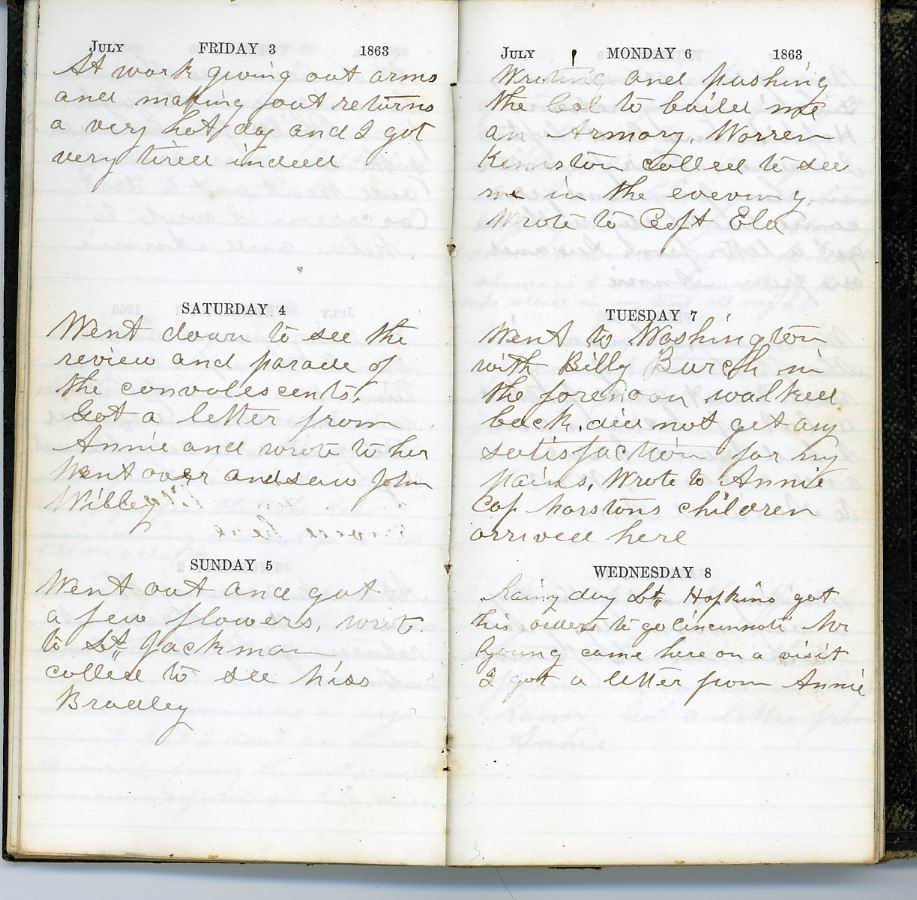 July FRIDAY 3 1863
At work giving out arms
and making out returns
a very hot day and I got
very tired indeed
SATURDAY 4
Went down to see the
review and parade of
the convolescents.
Got a letter from
Annie and wrote to her
Went over and saw John
Wibley
SUNDAY 5
Went out and got
a few flowers, wrote
to Lt Jackman
called to see Miss
Bradley
July MONDAY 6 1863
Writing and pushing
the Col to build me
an Armory. Warren
Kimston called to see
me in the evening.
Wrote to Capt Ela
TUESDAY 7
Went to Washington
with Billy Burch in
the forenoon walked
back. did not get any
satisfaction for my
pains. Wrote to Annie
Cap Marstons children
arrived here
WEDNESDAY 8
Rainy day Lt Hopkins got
his orders to go Cincinnati Mr
Young came here on a visit
I got a letter from Annie